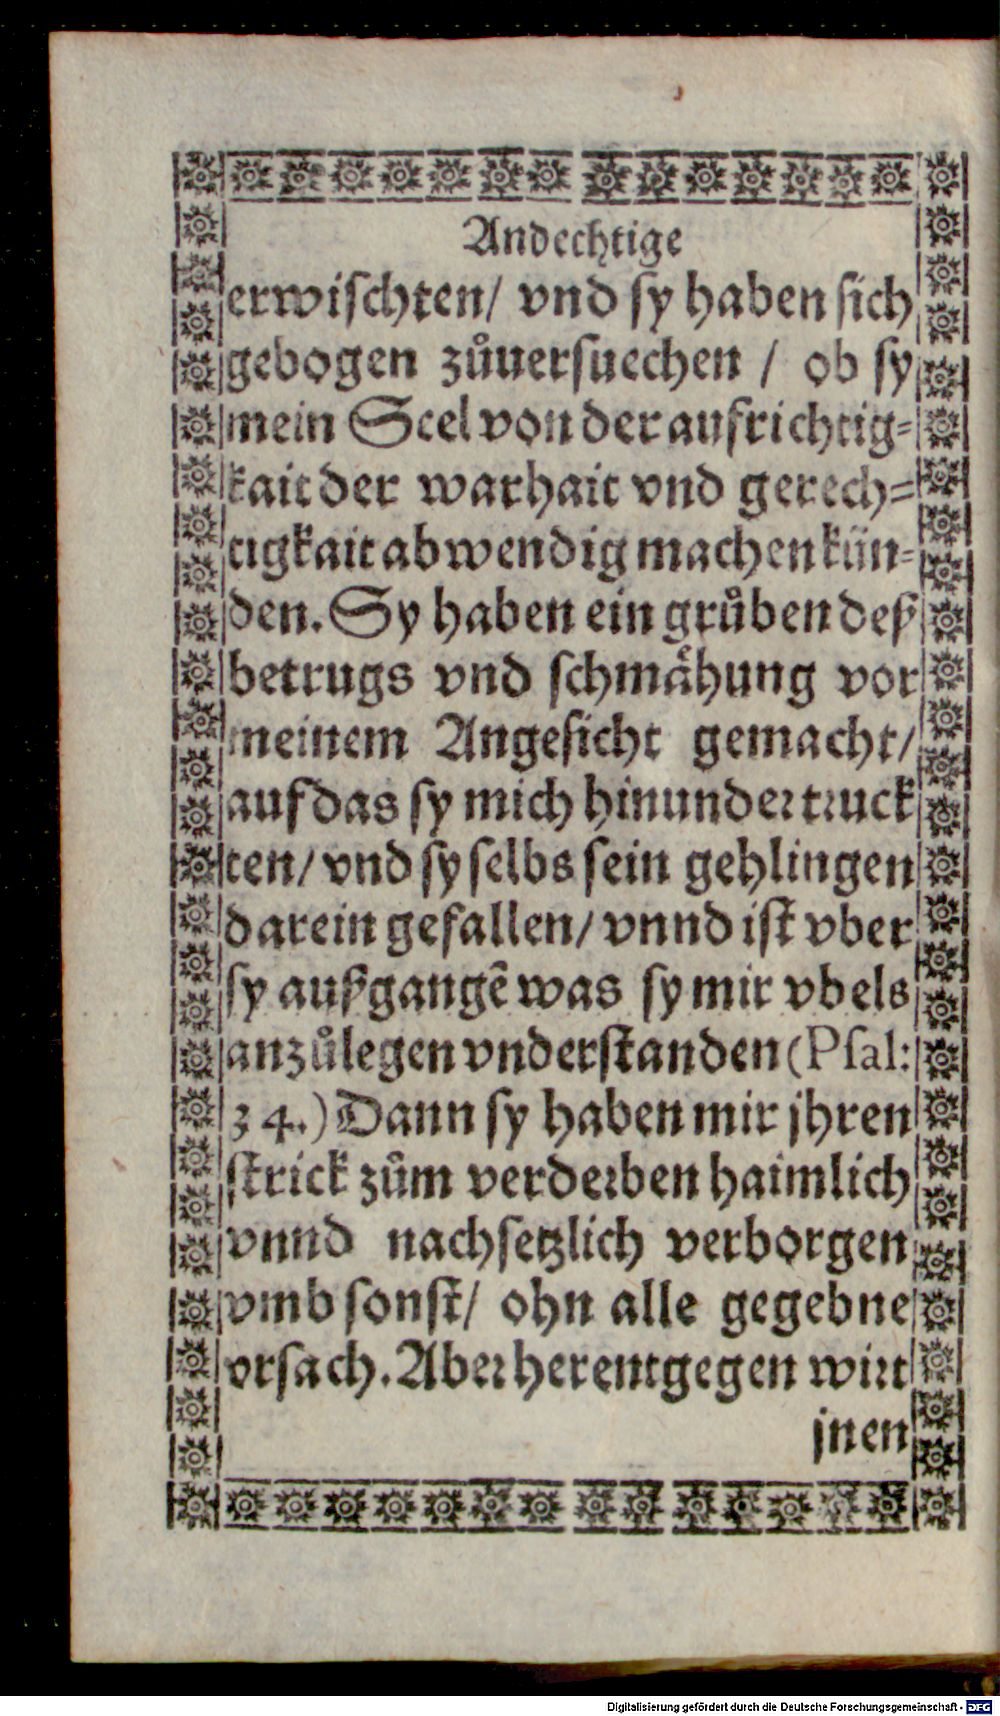 Andechtige
erwischten/ vnd sy haben sich
gebogen zůuersuechen / ob sy
mein Seel von der aufrichtig-
kait der warhait vnd gerech-
tigkait abwendig machen kün-
den. Sy haben ein grůben deß
betrugs vnd schmåhung vor
meinem Angesicht gemacht/
auf das sy mich hinundertruck
ten/ vnd sy selbs sein gehlingen
darein gefallen/ vnnd ist vber
sy außgangẽ was sy mir vbels
anzůlegen vnderstanden (Psal:
34.) Dann sy haben mir jhren
strick zům verderben haimlich
vnnd nachsetzlich verborgen
vmb sonst/ ohn alle gegebne
vrsach. Aber herentgegen wirt
jnen
Digitalisierung gefördert durch die Deutsche Forschungsgemeinschaft - DFG